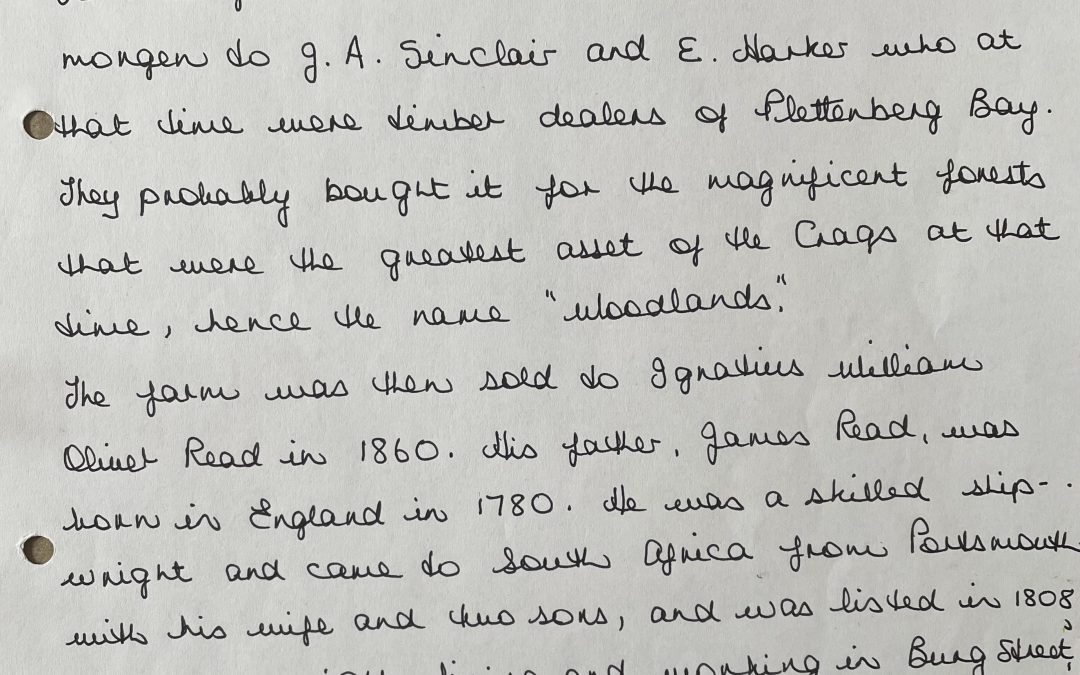 morgen to J. A. Sinclair and E. Harker who at
that time were timber dealers of Plettenberg Bay.
They probably bought it for the magnificent forests
that were the greatest asset of the Crags at that
time, hence the name "Woodlands."
The farm was then sold to Ignatius William
Oliver Read in 1860. His father, James Read, was
born in England in 1780. He was a skilled ship-
wright and came to South Africa from Portsmouth
with his wife and two sons, and was listed in 1808
and working in Burg Street,